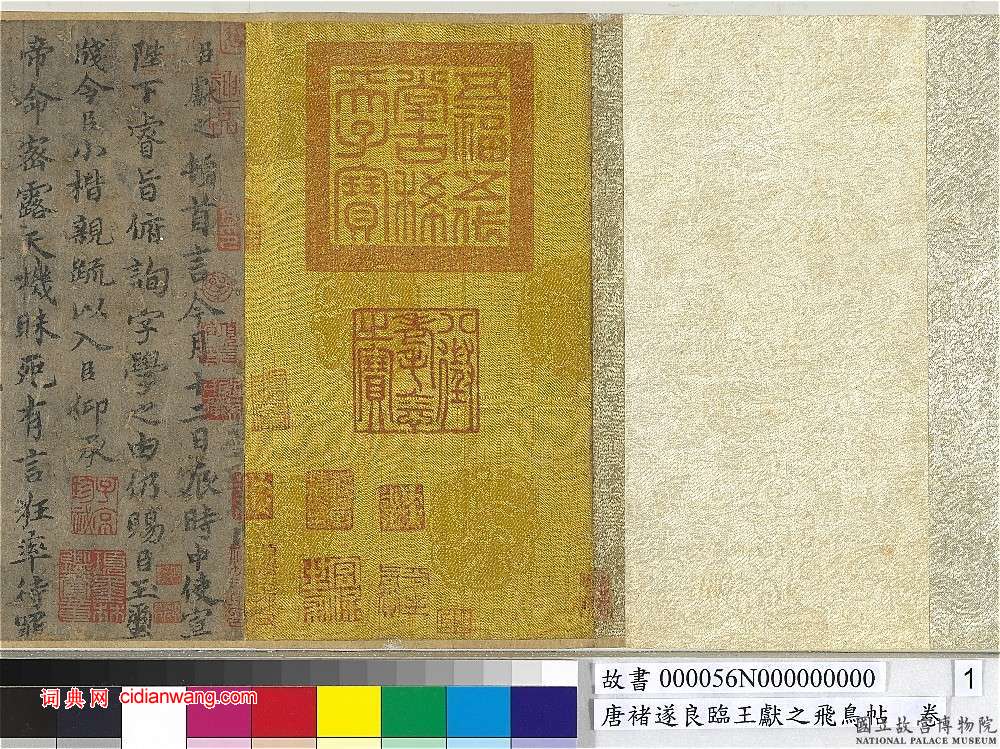 五福五代
堂古稀天
子寶
八徵
耄念
之寶
臣獻之頓首言今月十二日辰時中使宣
陛下睿旨俯詢字學之由仍賜臣玉璽
牋令臣小楷親疏以入臣仰承
帝命密露天機昧死有言狂率待罪
子京
珍秘
故書 000056N000000000
1
唐褚遂良臨王獻之飛鳥帖 卷
國立故宮博物院
NATIONAL PALACE MUSEUM
词典网 cidianwang.com